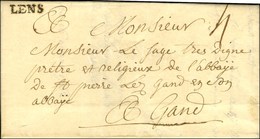 LENS
Monsieur
Monsieur Le faye tres digne
prêtre et religieux de l'abbaye
de St pierre Lez Gand en son
abbaye
Gand